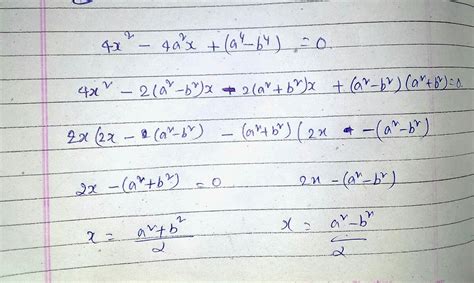 4x² - 4a²x + (a⁴-b⁴) = 0.
4x² - 2(a²-b²)x - 2(a²+b²)x + (a²-b²)(a²+b²)=0.
2x(2x - (a²-b²) - (a²+b²)(2x - (a²-b²)
2x-(a²+b²) = 0 2x-(a²-b²)
x = a²+b²/2 x = a²-b²/2